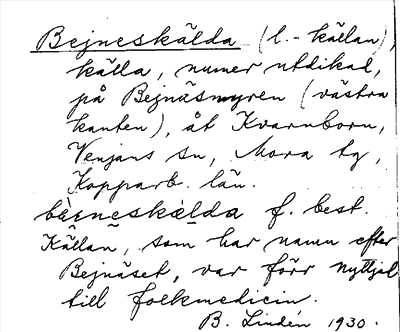 Bejneskälda (l. - källan),
källa, numer utdikad,
på Bejnäsmyren (västra
kanten), åt Kvarnborn,
Venjans sn, Mora tg,
Kopparb. län.
bèi̯neskæ̀lda f. best.
Källan, som har namn efter
Bejnäset, var förr nyttjad
till folkmedicin.
B. Lindén 1930.